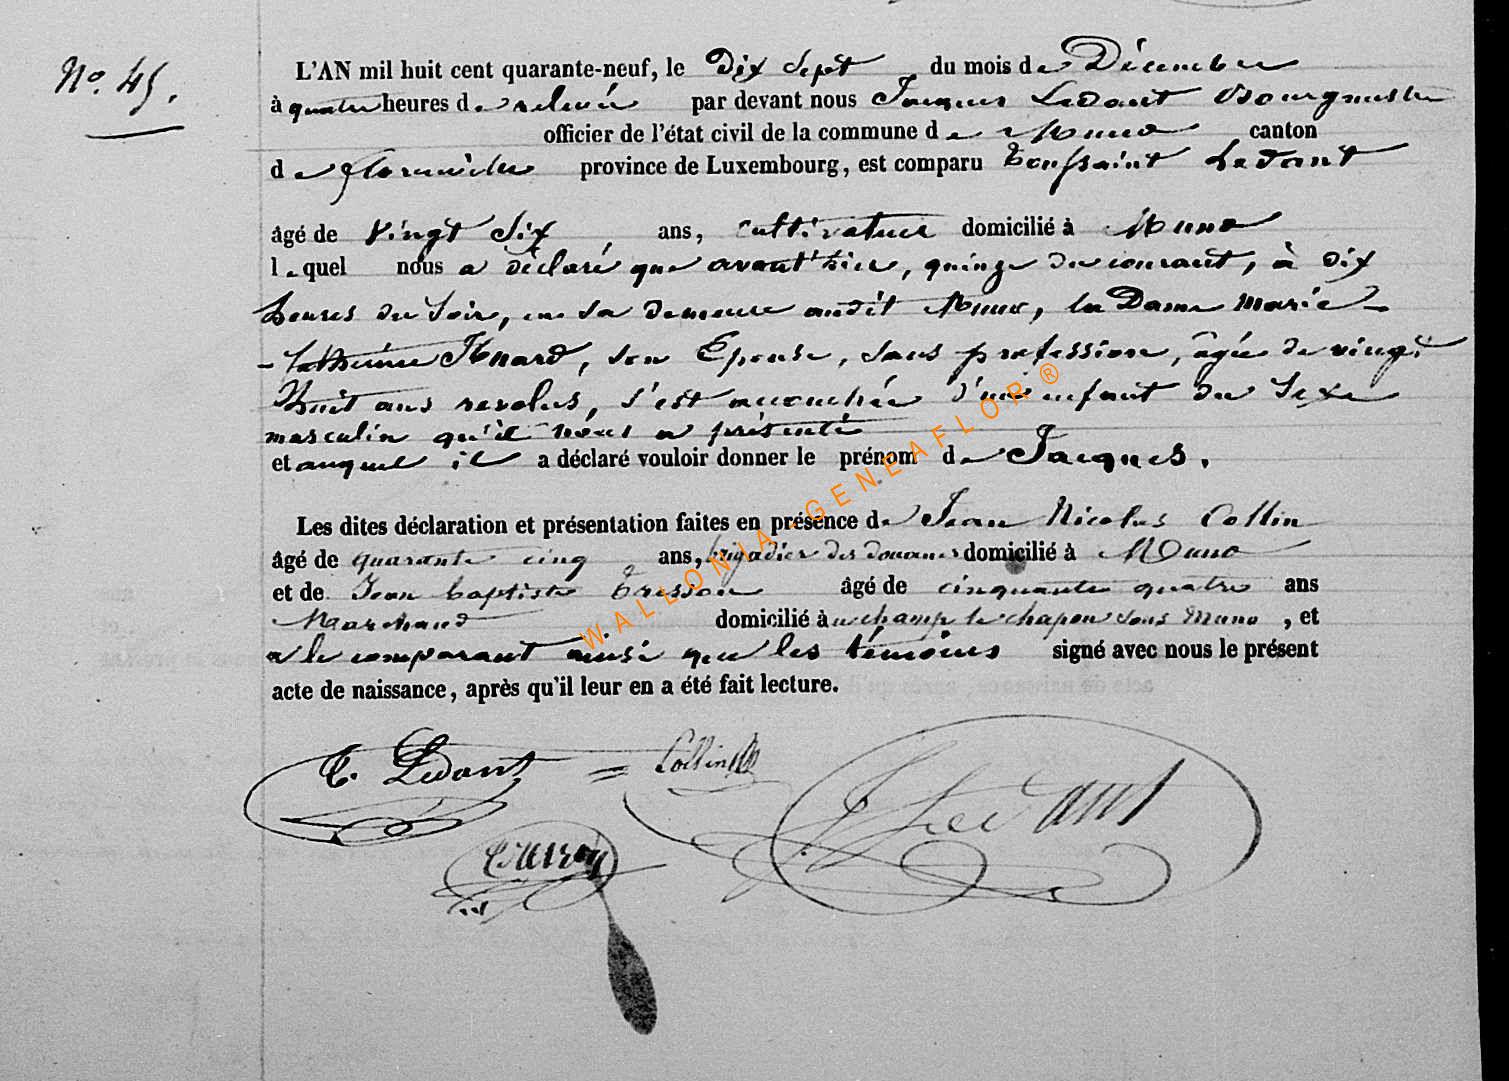 N° 45.
L'AN mil huit cent quarante-neuf, le Dix Sept du mois de Décembre
à quatre heures de relevée par devant nous Jacques Ledant Bourgmestre
officier de l'état civil de la commune de Muno canton
de florenville province de Luxembourg, est comparu Toussaint Ledant
âgé de vingt Six ans, cultivateur domicilié à Muno
lequel nous a déclaré que avant'hier, quinze du courant, à dix
heures du Soir, en Sa demeure audit Muno, la Dame Marie-
-Catherine Henard, son Epouse, sans profession, âgée de vingt
Huit ans revolus, S'est accouchée d'un enfant du Sexe
masculin qu'il nous a présenté
et auquel il a déclaré vouloir donner le prénom de Jacques.
Les dites déclaration et présentation faites en présence de Jean Nicolas Collin
âgé de quarante cinq ans, brigadier des douanes domicilié à Muno
et de Jean baptiste Tresson âgé de cinquante quatre ans
Marchand domicilié à champ le chapon sous Muno, et
a le comparant ainsi que les témoins signé avec nous le présent
acte de naissance, après qu'il leur en a été fait lecture.
T. Ledant
Collin
J. Ledant
WALLONIA - GENEAFLOR ®